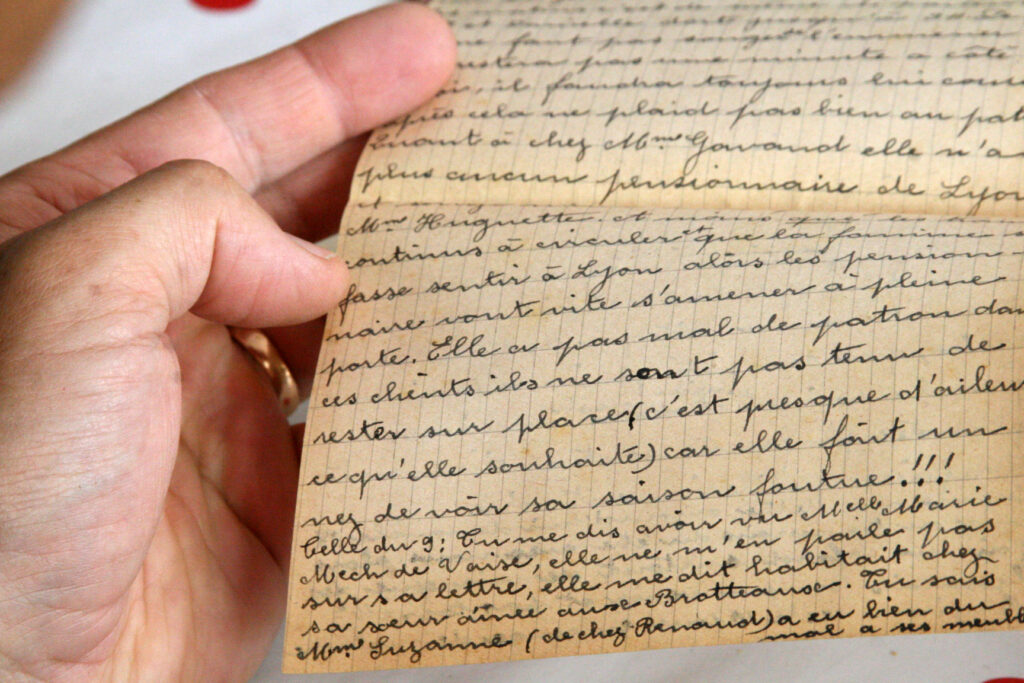 faut pas songer l'emmener
pas une minute a côté
il faudra toujours lui cour
après cela ne plaid pas bien au pat
Quant à chez Mme Gavaud elle n'a
plus aucun pensionnaire de Lyon
Mme Huguette. et moins que les
continus à circuler et que la famine s
fasse sentir à Lyon alors les pension-
naire vont vite s'amener à pleine
porte. Elle a pas mal de patron dan
ces clients ils ne sont pas tenu de
rester sur place (c'est presque d'aileur
ce qu'elle souhaite) car elle fait un
nez de voir sa saison foutue!!!
Celle du 9: Tu me dis avoir vu Melle Marie
Mech de Vaise, elle ne m'en parle pas
sur sa lettre, elle me dit habitait chez
sa sœur ainée aux Brotteaux. Tu sais
Mme Suzanne (de chez Renaud) a eu bien du
mal a ses meubl